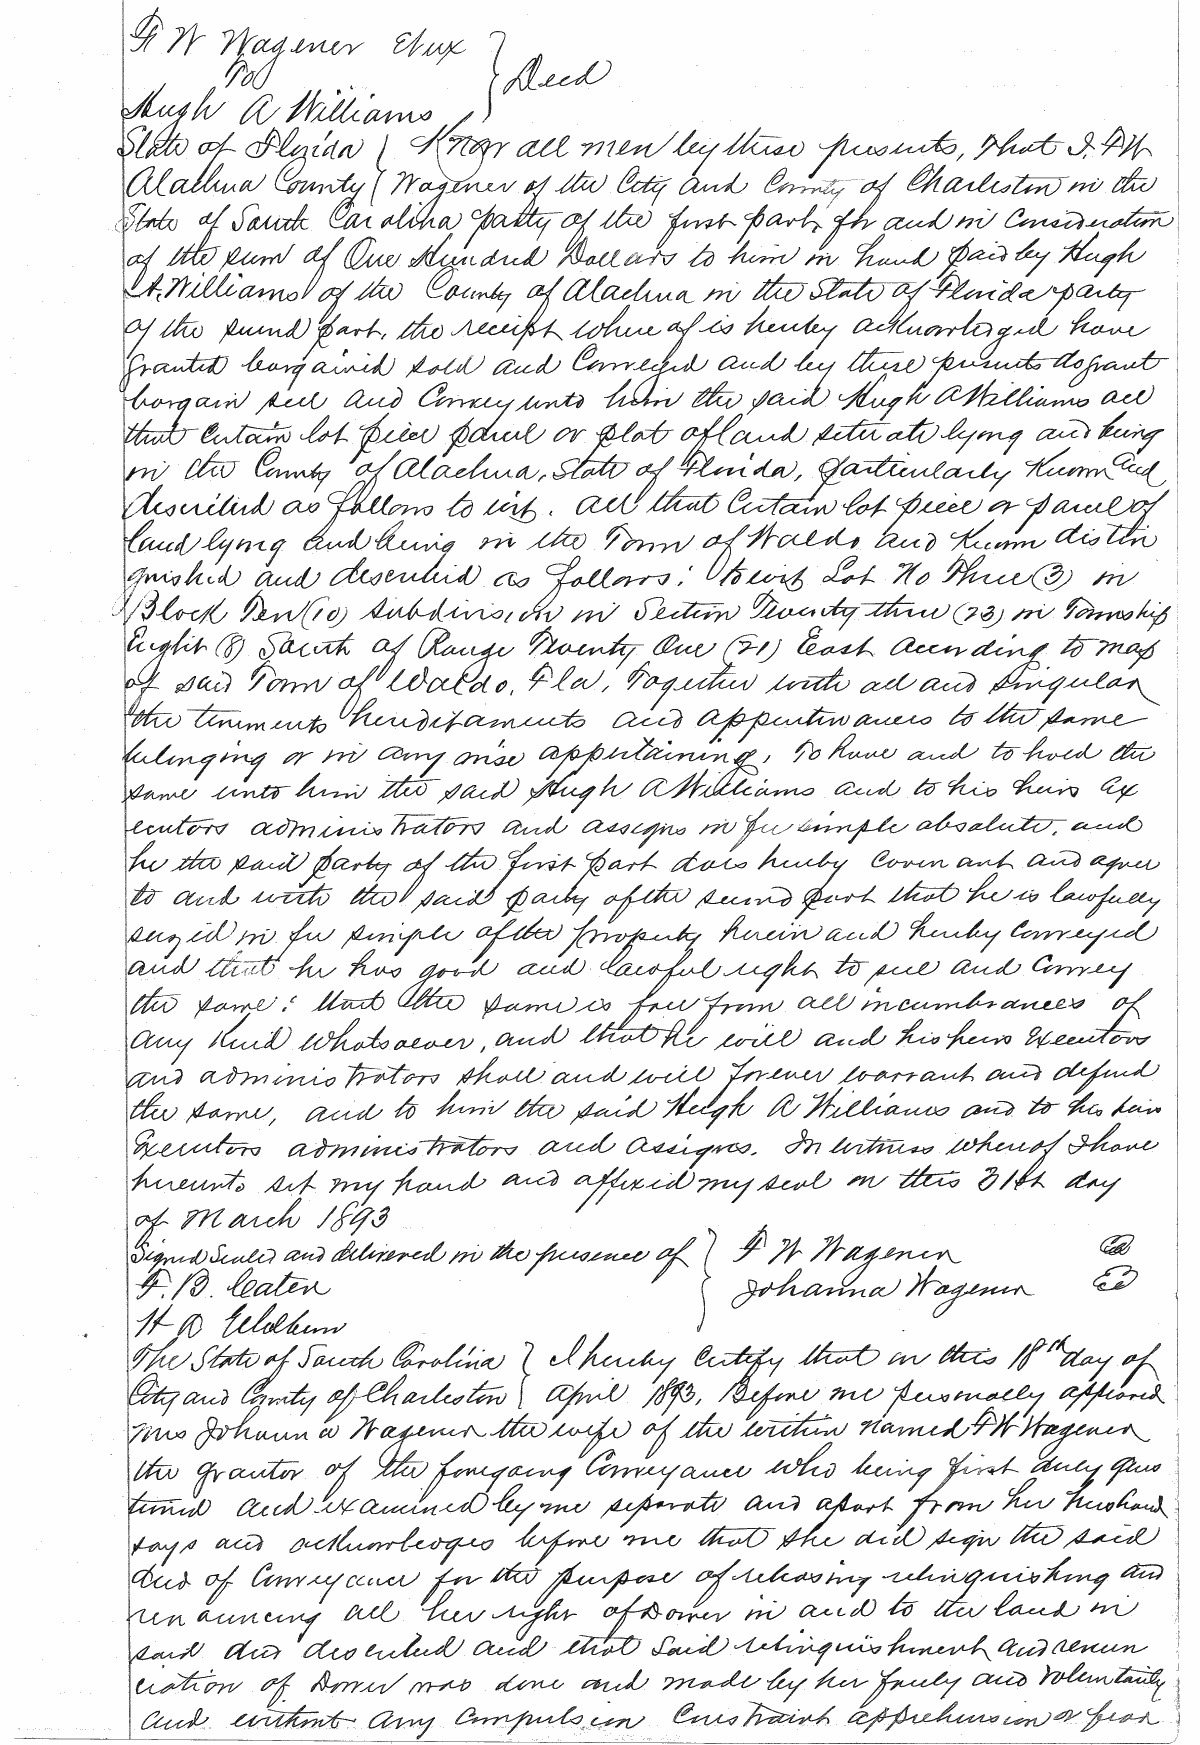 F W Wagener Etux
To } Deed
Hugh A Williams
State of Florida } Know all men by these presents, That I. F W
Alachua County { Wagener of the City and County of Charleston in the
State of South Carolina party of the first part, for and in Consideration
of the sum of One Hundred Dollars to him in hand paid by Hugh
A. Williams of the County of Alachua in the State of Florida party
of the second part, the receipt where of is hereby acknowledged have
granted bargained sold and Conveyed and by these presents do grant
bargain sell and Convey unto him the said Hugh A Williams all
that certain lot piece parcel or plot of land seterate lying and being
in the County of Alachua, State of Florida, particularly Known and
described as follows to wit. all that Certain lot piece or parcel of
land lying and being in the Town of Waldo and Known distin
guished and described as follows: to wit Lot No Three (3) in
Block Ten (10) subdivision in Section Twenty three (23) in Township
Eight (8) South of Range Twenty One (21) East According to map
of said Town of Waldo, Fla, Together with all and singular
the tenements hereditaments and appurtenances to the same
belonging or in any wise appertaining, To have and to hold the
same unto him the said Hugh A Williams and to his heirs Ex
ecutors administrators and assigns in fee simple absolute, and
he the said party of the first part does hereby Coven ant and agree
to and with the said party of the second part that he is lawfully
seized in fee simple of the property herein and hereby Conveyed
and that he has good and lawful right to sell and Convey
the same: that the same is free from all incumbrances of
any Kind whatsoever, and that he will and his heirs Executors
and administrators shall and will forever warrant and defend
the same, and to him the said Hugh A Williams and to his heirs
Executors administrators and assigns. In witness whereof I have
hereunto set my hand and affixed my seal on this 31st day
of March 1893
Signed Sealed and delivered in the presence of } F W Wagener
F. B. Caten { Johanna Wagener
H D
The State of South Carolina } I hereby Certify that on this 18th day of
City and County of Charleston } April 1893, Before me personally appeared
Mrs Johanna Wagener the wife of the within named F W Wagener
the grantor of the foregoing Conveyance who being first duly ques
tioned and examined by me separate and apart from her husband
says and acknowledges before me that she did sign the said
deed of Conveyance for the purpose of releasing relinquishing and
renouncing all her right of Dower in and to the land in
said deed described and that said relinquishment and renun
ciation of Dower was done and made by her freely and voluntarily
and without any Compulsion Constraint apprehension or fear